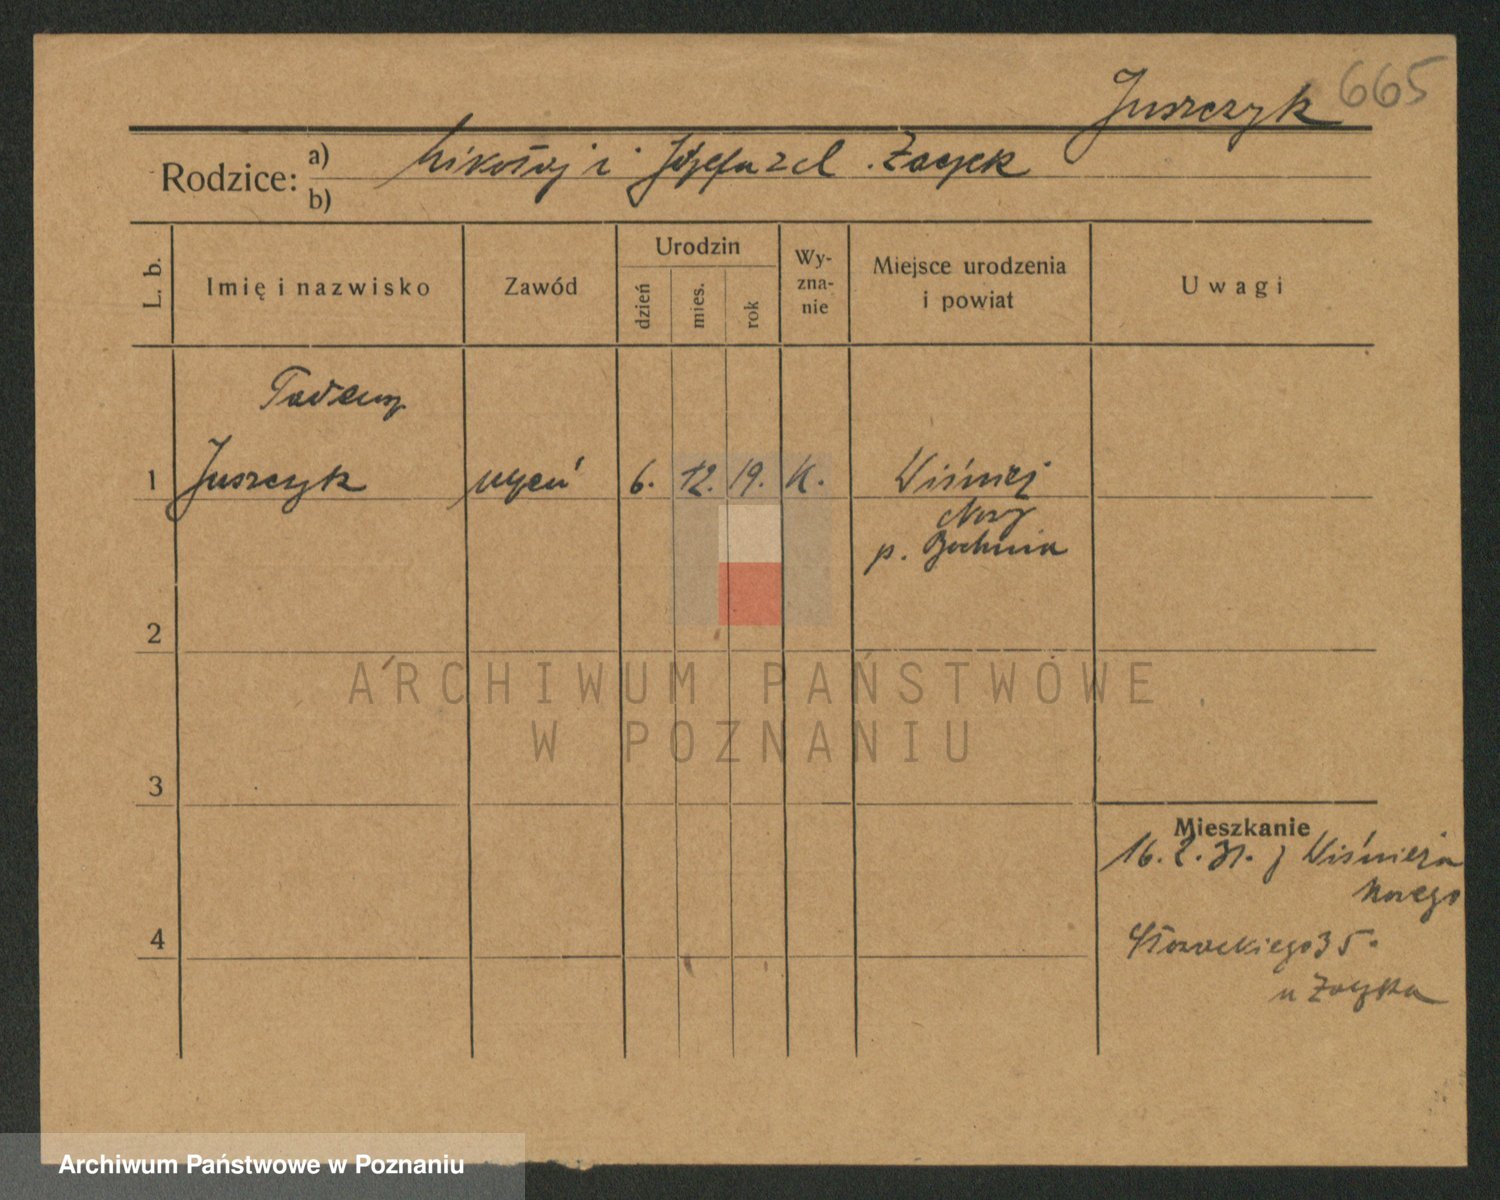 Juszczyk 665
Rodzice: a) Mikołaj i Józefa z d. Zacyek
b)
L. b.
Imię i nazwisko
Zawód
Urodzin
dzień
mies.
rok
Wy-
zna-
nie
Miejsce urodzenia
i powiat
Uwagi
Tadeusz
1 Juszczyk uczeń 6. 12. 19. K. Wiśnicz
Nowy
p. Bochnia
2
3
4
Mieszkanie
16. 2. 31. z Wiśnicza
Nowego
Słowackiego 35.
u
ARCHIWUM PAŃSTWOWE
W POZNANIU
Archiwum Państwowe w Poznaniu